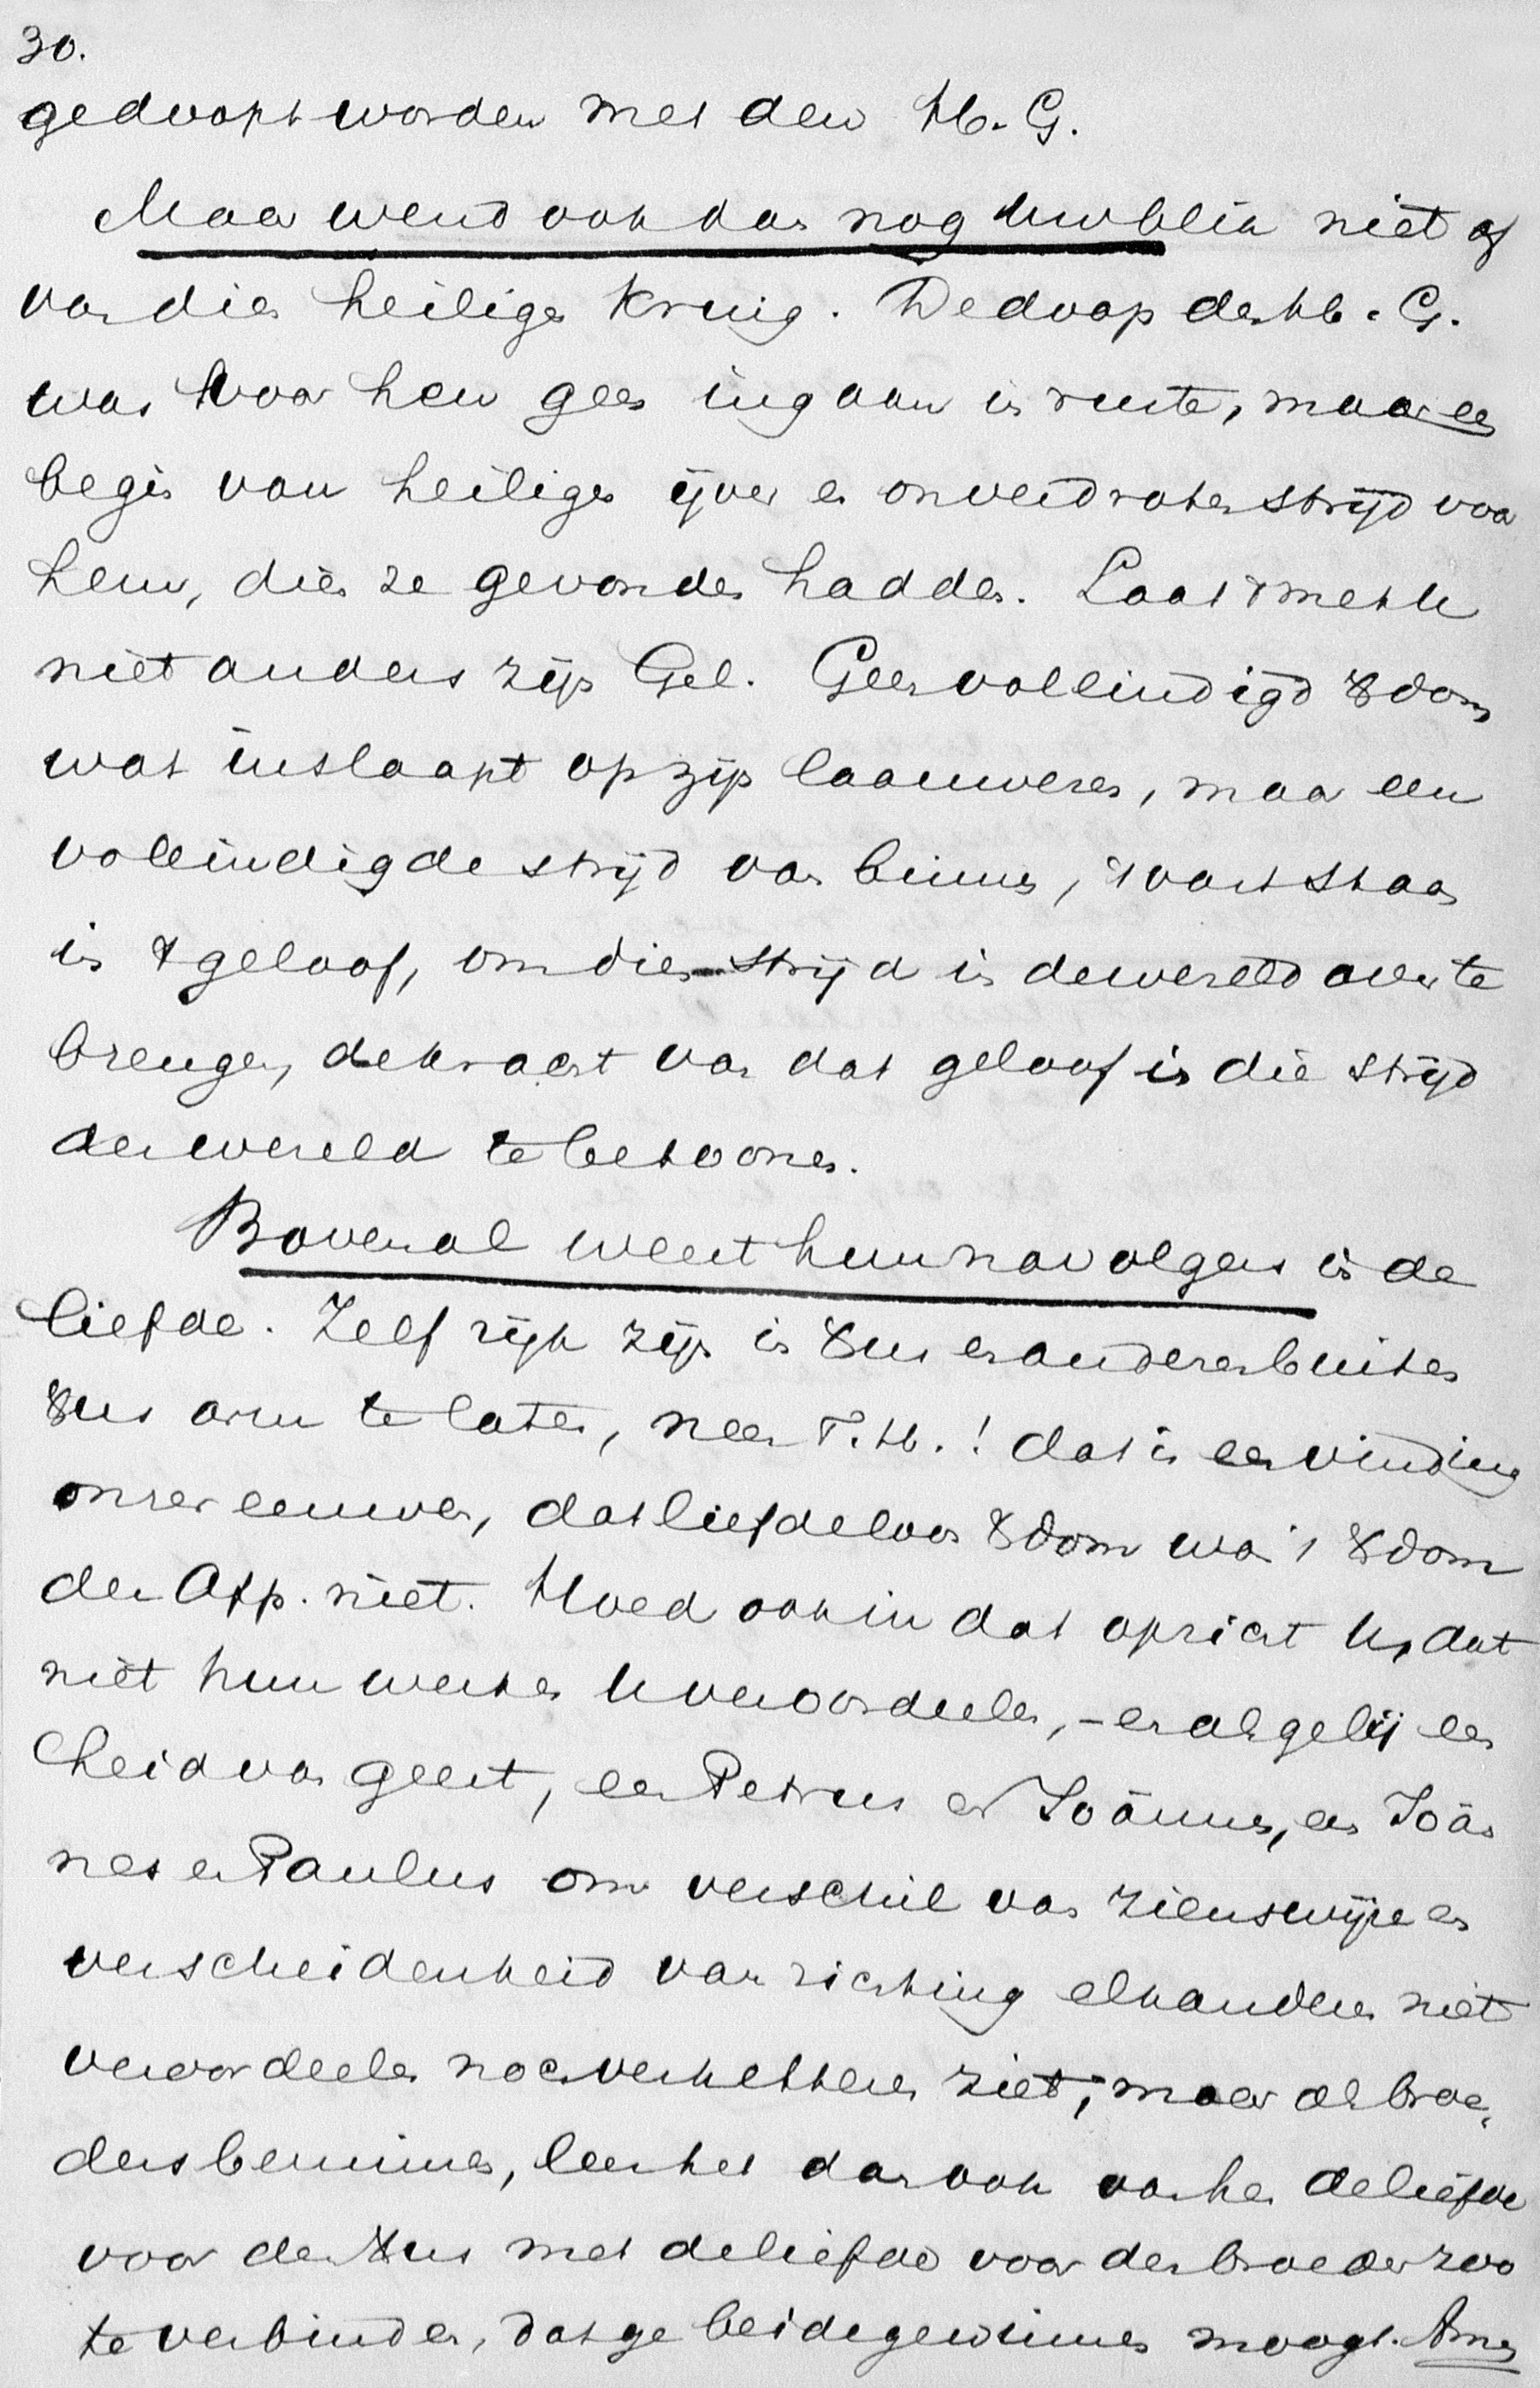 30.
gedoopt worden met den H. G.
Maar wend ook dan nog Uw blik niet af
van dien heiligen kring. De doop des H. G.
was voor hen geen ingaan in ruste, maar een
begin van heiligen ijver en onverdroten strijd voor
hem, dien ze gevonden hadden. Laat 't met U
niet anders zijn Gel. Geen voleindigd Xdom
wat inslaapt op zijn laauweren, maar een
voleindigde strijd van binnen, 't vast staan
in 't geloof, om dien strijd in de wereld over te
brengen, de kracht van dat geloof in die strijd
der wereld te betoonen.
Bovenal weest hun navolgers in de
liefde. Zelf rijk zijn in Xus en anderen buiten
Xus arm te laten, neen T. H.! dat is een vinding
onzer eeuwen, dat liefdeloos Xdom was 't Xdom
der App. niet. Moed ook in dat opzicht U, dat
niet hun werken U veroordeelen, - en als gelij een
heid van geest, een Petrus en Joannes, een Joan
nes en Paulus om verschil van zienswijze en
verscheidenheid van richting elkanderen niet
veroordeelen noch verketteren ziet, maar als broe,
ders beminnen, leer het dan ook van hen de liefde
voor den Xus met de liefde voor den broeder zoo
te verbinden, dat ge beide gewinnen moogt. Amen